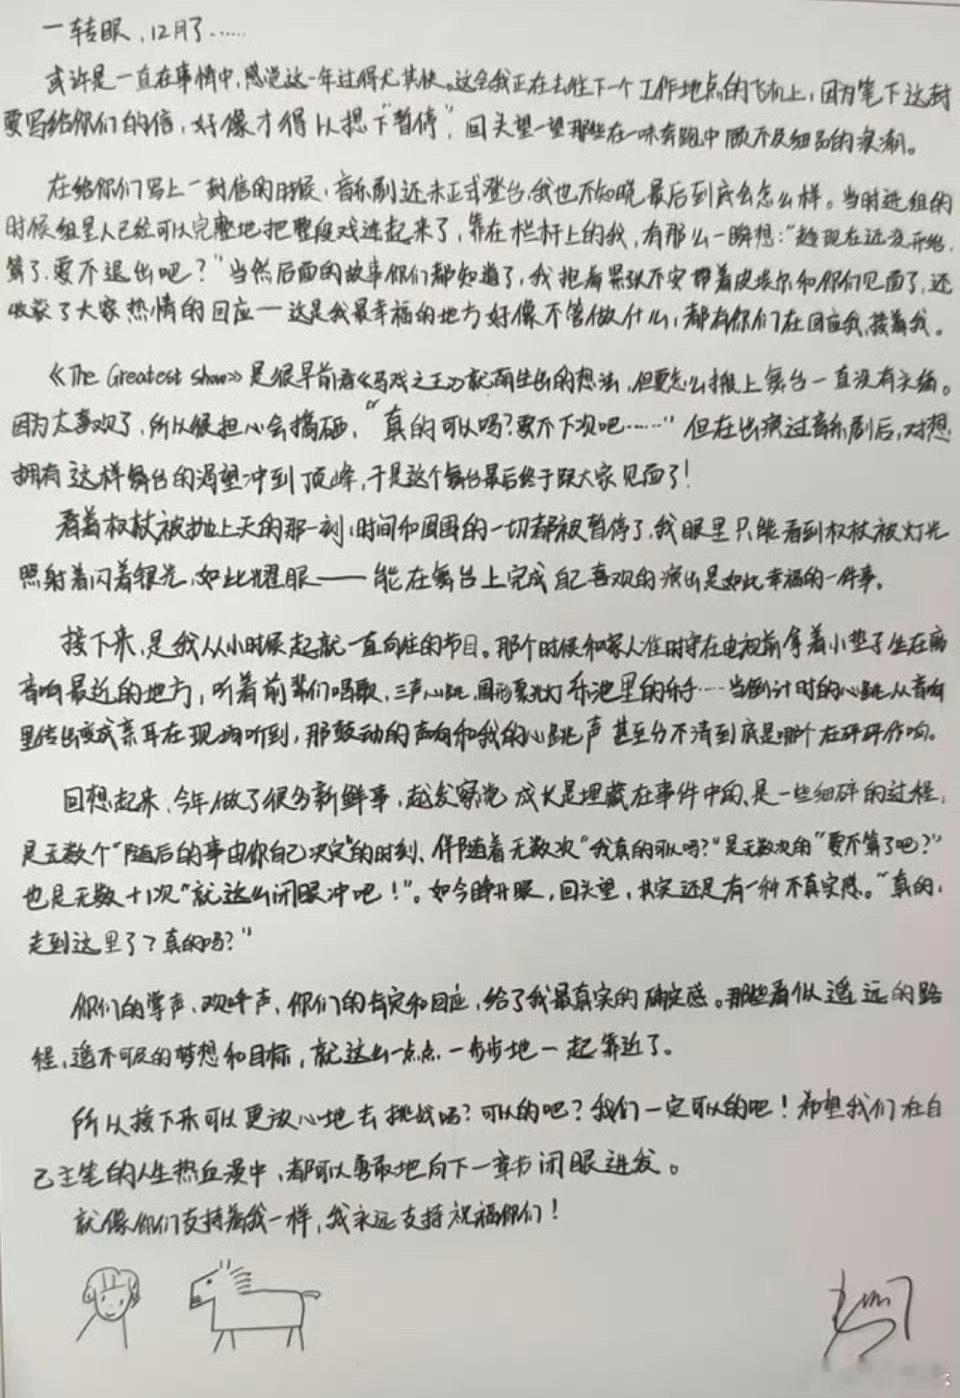 一转眼，12月了……
或许是一直在事情中，感觉这一年过得尤其快。这会我正在去往下一个工作地点的飞机上，因为笔下这封
要写给你们的信，好像才得以摁下“暂停”，回头望一望那些在一味奔跑中顾不及细品的浪潮。
在给你们写上一封信的时候，音乐剧还未正式登台，我也不知晓最后到底会怎么样。当时进组的
时候组里人已经可以完整地把整段戏连起来了，靠在栏杆上的我，有那么一瞬想：“趁现在还没开始，
算了，要不退出吧？”当然后面的故事你们都知道了，我抱着紧张不安带着皮埃尔和你们见面了，还
收获了大家热情的回应——这是我最幸福的地方，好像不管做什么，都有你们在回应我，接着我。
《The Greatest Show》是很早前看《马戏之王》就萌生出的想法，但要怎么搬上舞台一直没有头绪。
因为太喜欢了，所以很担心会搞砸，“真的可以吗？要不下次吧……”但在出演过音乐剧后，对想
拥有这样舞台的渴望冲到顶峰，于是这个舞台最后终于跟大家见面了！
看着权杖被抛上天的那一刻，时间和周围的一切都被暂停了，我眼里只能看到权杖被灯光
照射着闪着银光，如此耀眼——能在舞台上完成自己喜欢的演出是如此幸福的一件事。
接下来，是我从小时候起就一直向往的节目。那个时候和家人准时守在电视前拿着小垫子坐在离
音响最近的地方，听着前辈们唱歌，三声心跳，圆形聚光灯，乐池里的乐手……当倒计时的心跳从音响
里传出变成亲耳在现场听到，那鼓动的声响和我的心跳声甚至分不清到底是哪个在砰砰作响。
回想起来，今年做了很多新鲜事，越发察觉成长是埋藏在事件中的、是一些细碎的过程，
是无数个“随后的事由你自己决定”的时刻、伴随着无数次“我真的可以吗？”是无数次的“要不算了吧？”
也是无数+1次“就这么闭眼冲吧！”。如今睁开眼，回头望，其实还是有一种不真实感。“真的，
走到这里了？真的吗？”
你们的掌声、欢呼声，你们的肯定和回应，给了我最真实的确定感。那些看似遥远的路
程，遥不可及的梦想和目标，就这么一点点、一步步地一起靠近了。
所以接下来可以更放心地去挑战吗？可以的吧？我们一定可以的吧！希望我们在自
己主笔的人生热血漫中，都可以勇敢地向下一章节闭眼进发。
就像你们支持着我一样，我永远支持祝福你们！